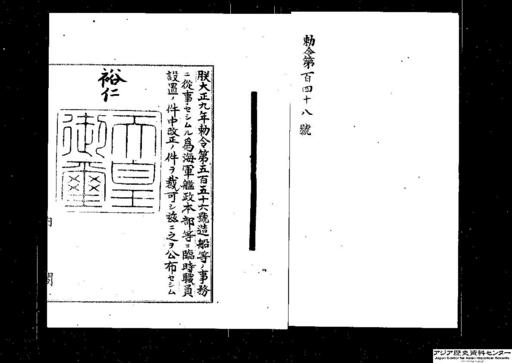 勅令第百四十八號
朕大正九年勅令第五百五十六號造船等ノ事務
ニ從事セシムル爲海軍艦政本部等ニ臨時職員
設置ノ件中改正ノ件ヲ裁可シ茲ニ之ヲ公布セシム
裕仁
天皇
御璽
内閣
アジア歴史資料センター
Japan Center for Asian Historical Records